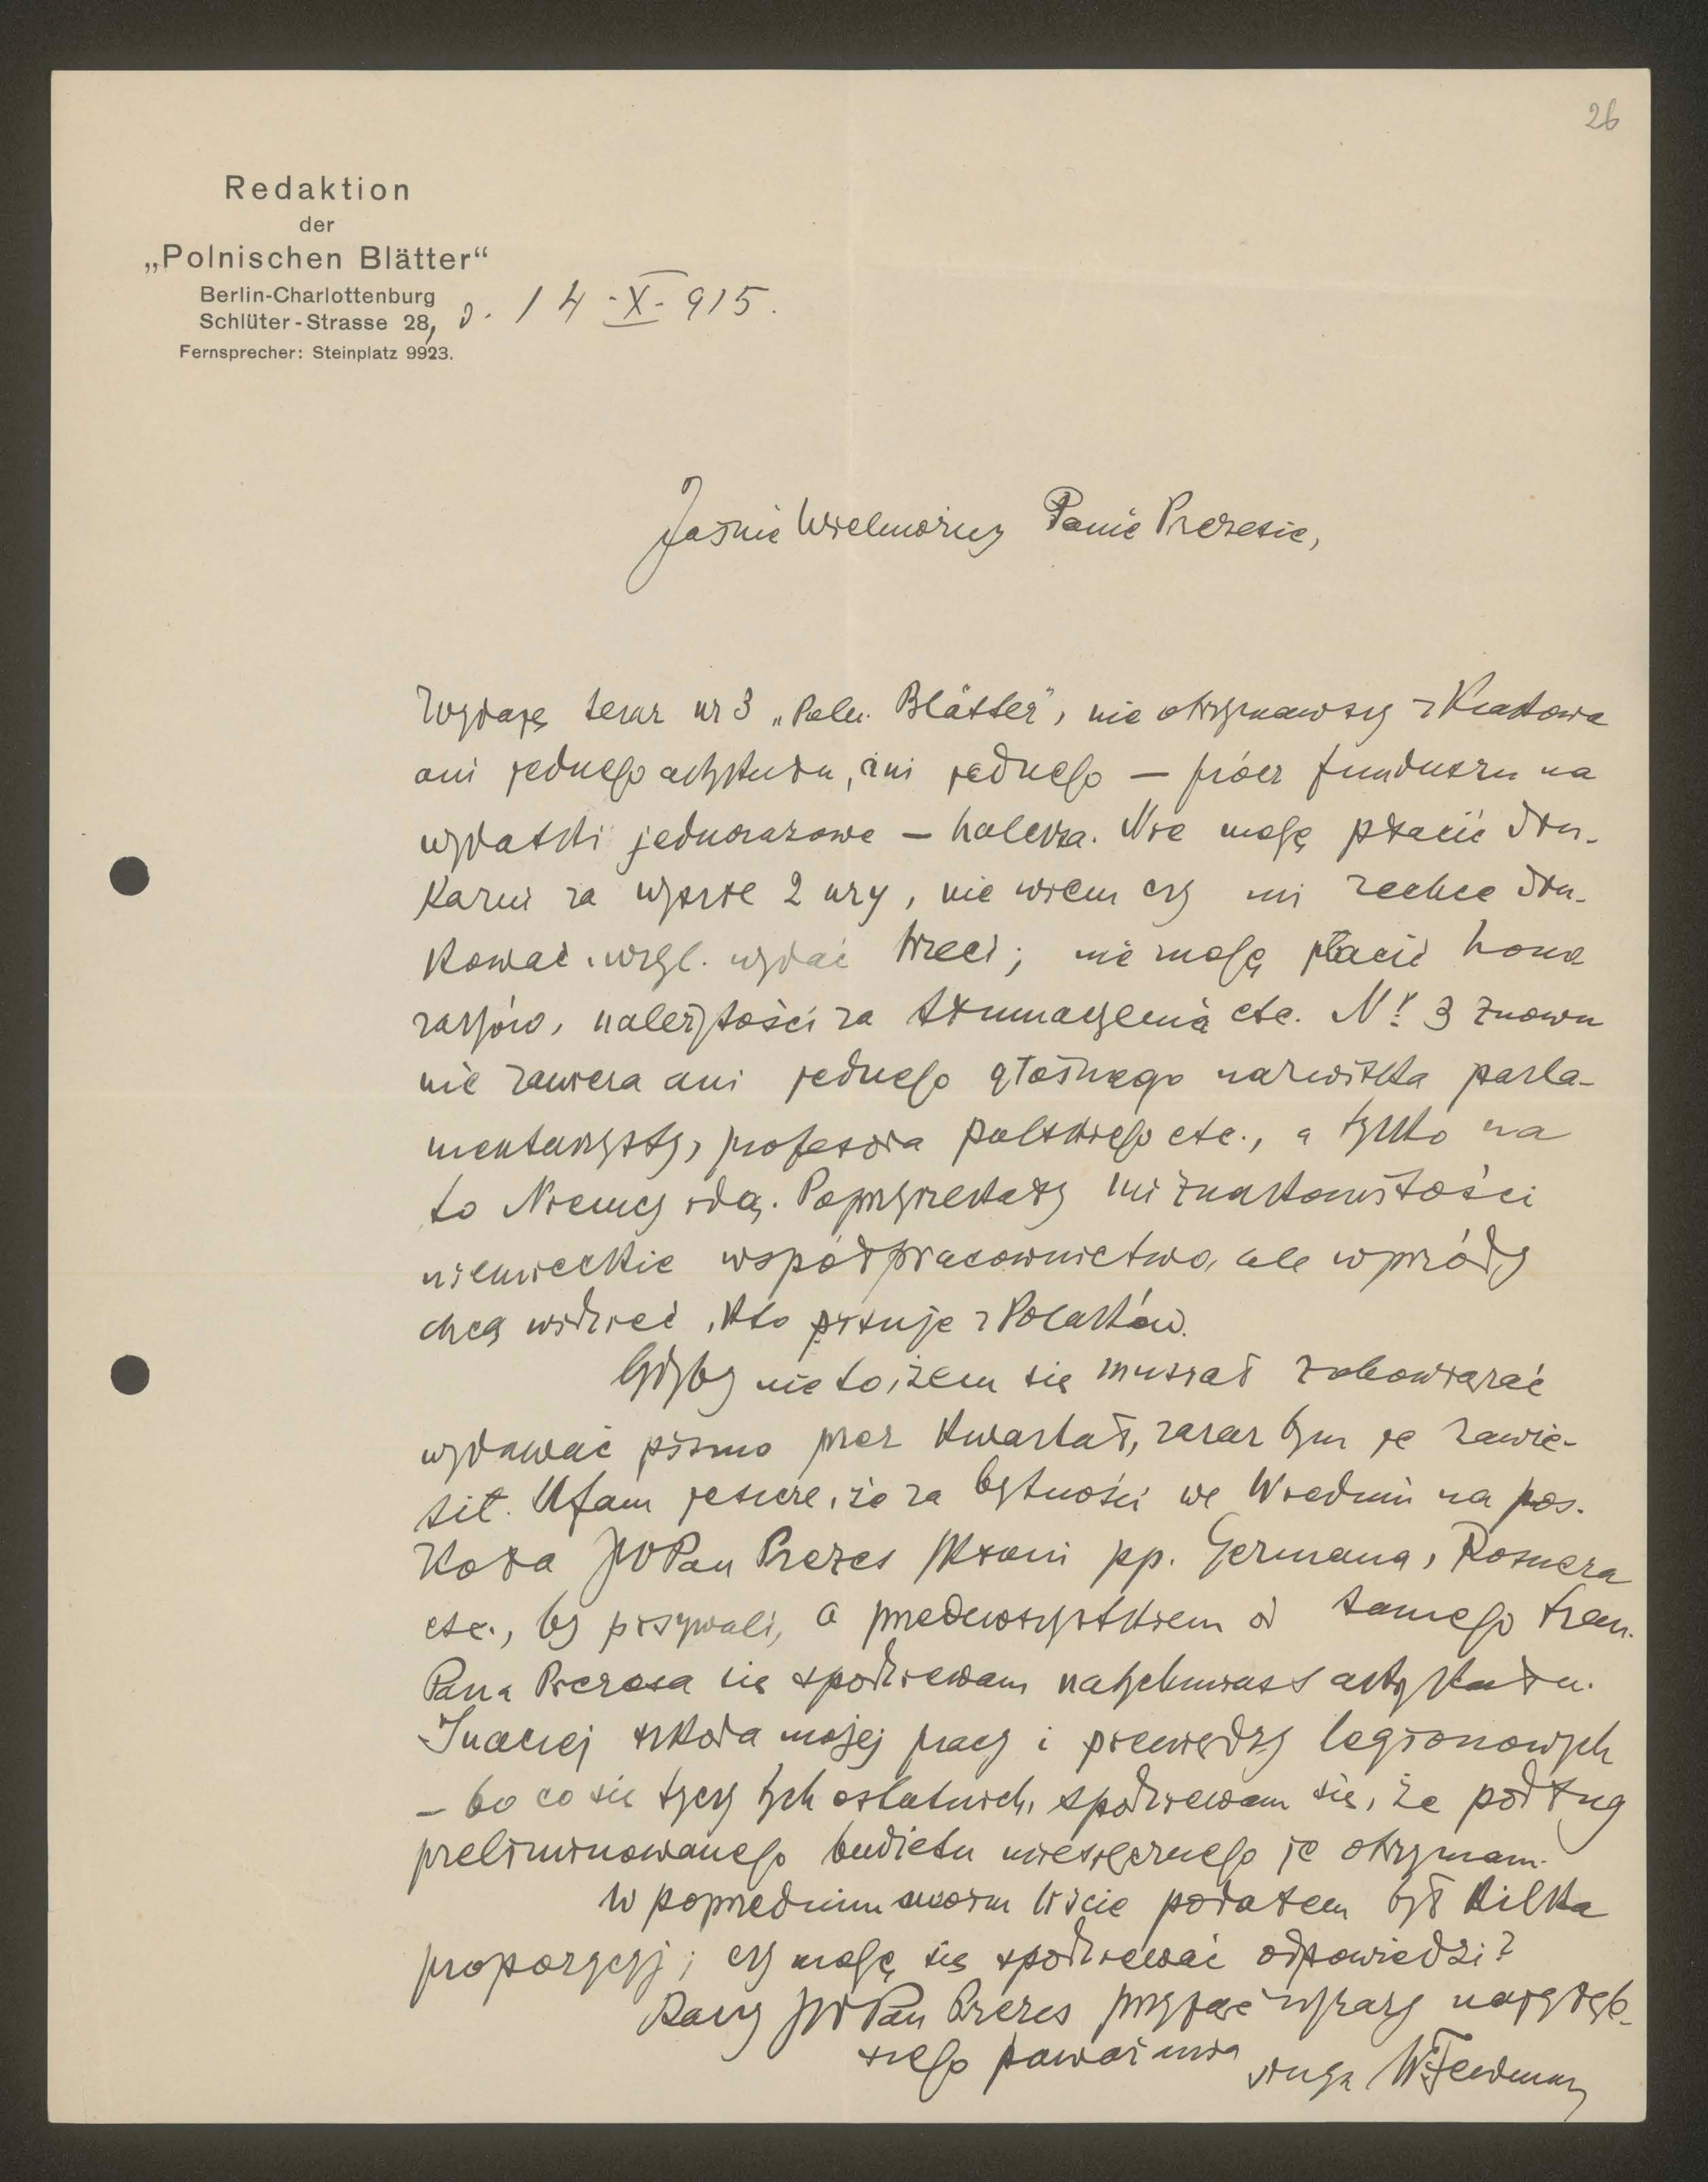 26
Redaktion
der
„Polnischen Blätter“
Berlin-Charlottenburg
Schlüter-Strasse 28, d. 14-X-915.
Fernsprecher: Steinplatz 9923.
Jaśnie Wielmożny Panie Prezesie,
Wydaję teraz nr 3 „Poln. Blätter”, nie otrzymawszy z Krakowa
ani jednego artykułu, ani jednego — prócz funduszu na
wydatki jednorazowe — halerza. Nie mogę płacić dru-
karni za wyszłe 2 nry, nie wiem czy mi zechce dru-
kować wzgl. wydać trzeci; nie mogę płacić hono
raryów, należytości za tłumaczenia etc. Nr 3 znowu
nie zawiera ani jednego głośnego nazwiska parla-
mentarzysty, profesora polskiego etc., a tylko na
to Niemcy idą. Poprzyrzekały mi znakomitości
niemieckie współpracownictwo, ale wprzódy
chcą widzieć, kto pisuje z Polaków.
Gdyby nie to, żem się musiał zobowiązać
wydawać pismo przez kwartał, zaraz bym je zawie-
sił. Ufam jeszcze, że za bytności we Wiedniu na pos.
Koła JWPan Prezes skłoni pp. Germana, Rosnera
etc., by pisywali, a przedewszystkiem od samego
Pana Prezesa się spodziewam natychmiast artykułu.
Inaczej szkoda mojej pracy i pieniędzy legionowych
— bo co się tyczy tych ostatnich, spodziewam się, że podług
preliminowanego budżetu miesięcznego je otrzymam.
W poprzednim swoim liście podałem był kilka
propozycyj; czy mogę się spodziewać odpowiedzi?
Raczy JWPan Prezes przyjąć wyrazy najgłęb-
szego poważania
sługa WFeldman